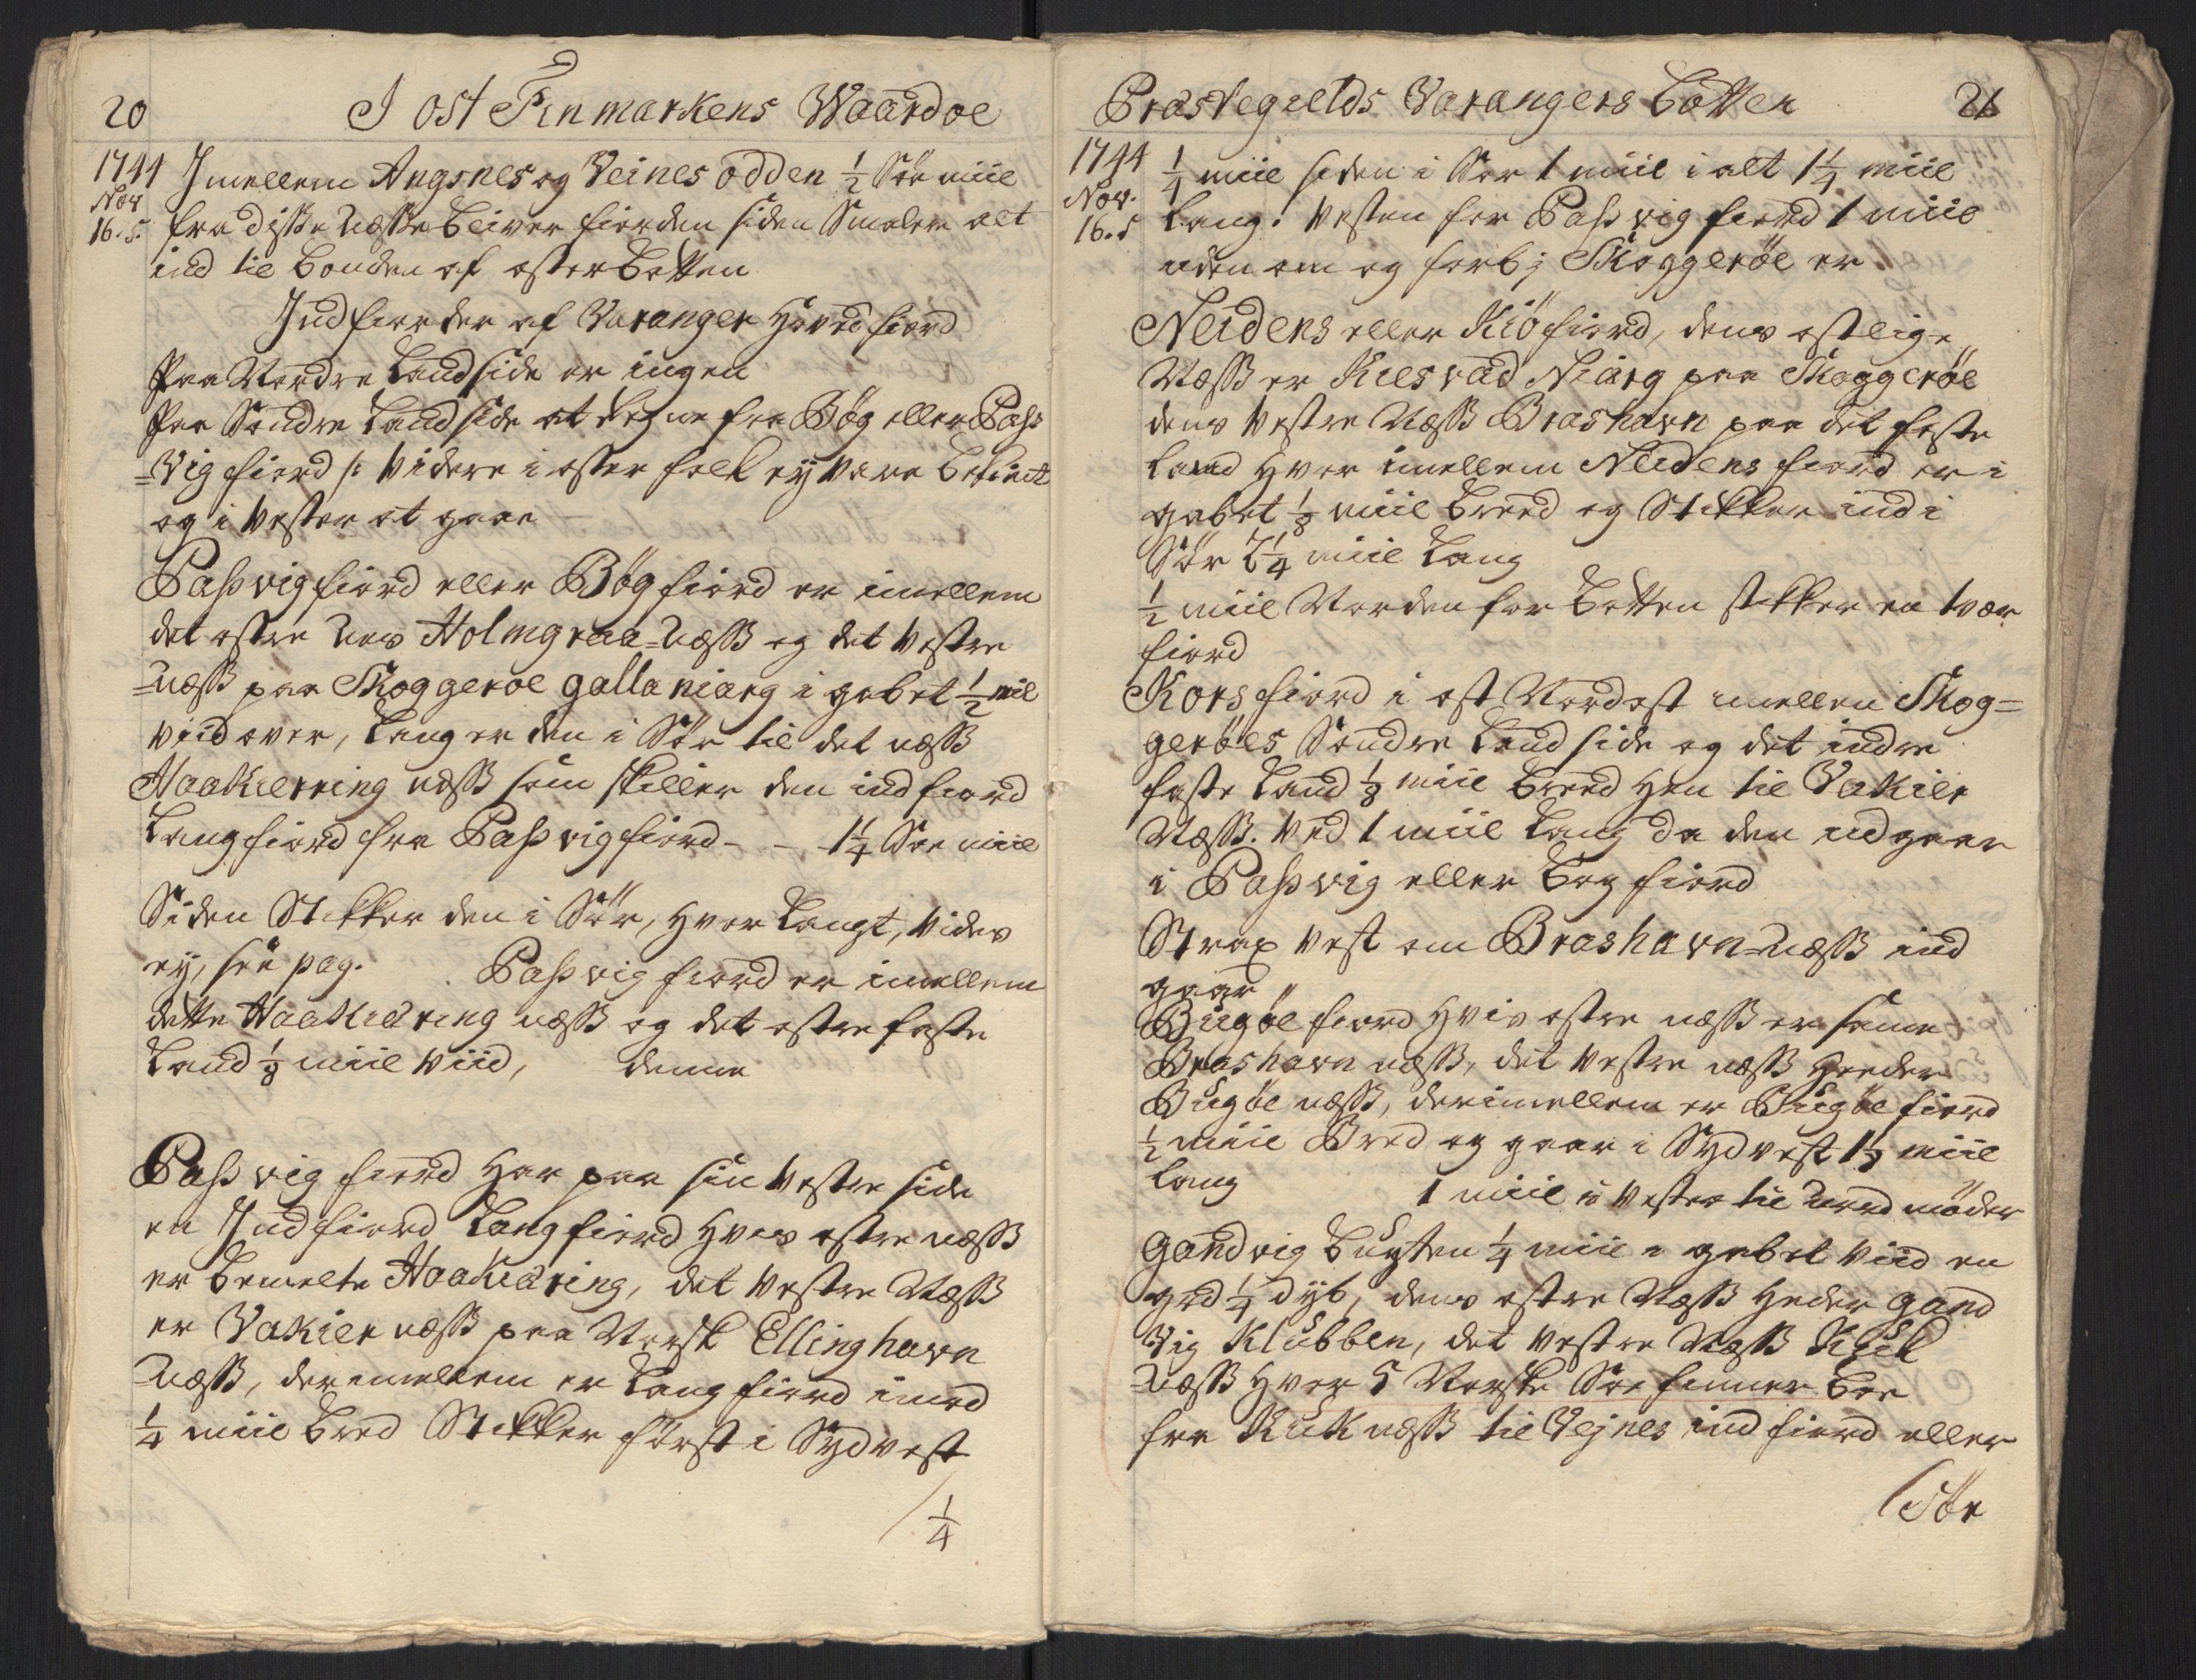 20
I Ost Finmarkens Waardoe
1744
Nov
16. S.
Imellem Angsnes og Veines odden ½ Söe miil
fra diße Næße bliver fiorden siden Smalere alt
ind til bonden af osterbotten
Indfiorder af Varanger Hovedfiord
Paa Nordre Landside er ingen
Paa Söndre Landside at regne fra Bög eller Pas-
=Vig fiord /: videre i öster fold ej være
og i Vester at gaae
Pasvigfiord eller Bögfiord er imellem
det östre Næs Holmgraa-Næss og det Vestre
=næss paa Skoggeröe gallaniarg i gabet ½ mil
viid over, Lang er den i Sör til det næss
Haakierring næss som skiller den indfiord
Langfiord fra Pasvigfiord - - 1¼ Söe miil
Siden Stikker den i Sör, hvor Langt, vides
ej, see pag. Pasvigfiord er imellem
dette Haakiæring næss og det östre faste
Land ⅛ miil viid, denne
Pasvigfiord har paa sin Vestre side
en Indfiord Langfiord hvis östre næss
er bemelte Haakiæring, det Vestre Næss
er Vakier næss paa Norsk Ellinghavn
Næss, derimellem er Langfiord imod
¼ miil bred Stikker först i Sydvest
¼
Præstegields Varangers botten
21
1744
Nov.
16. S
¼ miil siden i Sör 1 miil i alt 1¼ miil
Lang. Vesten for Pasvigfiord 1 miil
uden om og forbj Skoggeröe er
Neidens eller Kiöfiord, dens östlige
Næss er Kiesvad Niarg paa Skoggeröe
dens Vestre Næss Brashavn paa det faste
Land hvor imellem Neidens fiord er i
gabet ⅛ miil breed og Stikker ind i
Sör 2¼ miil Lang
½ miil Norden for botten stikker en tvær
fiord
Korsfiord i ost Nordost imellem Skog=
geröes Söndre Landside og det indre
faste Land ⅛ miil breed hen til Vakier
Næss. Ved 1 miil Lang da den udgaaer
i Pasvig eller bög fiord
Strax Vest om Brashavn-Næss ind
gaar
Bugöe fiord hvis östre næss er samme
Brashavn næss, det Vestre næss heeder
Bugöe næss, derimellem er Bugöe fiord
½ miil Bred og gaar i Sydvest 1½ miil
Lang
1 miil i Vester til Nord möder
Gandvig bugten ¼ miil i gabet viid en
god ¼ dyb, dens östre Næss heder Gand
Vig Klubben, det Vestre Næss Kuk
Næss hvor 5 Norske Söe finner boe
fra Kuk næss til Vejnes indfiord eller
Sör